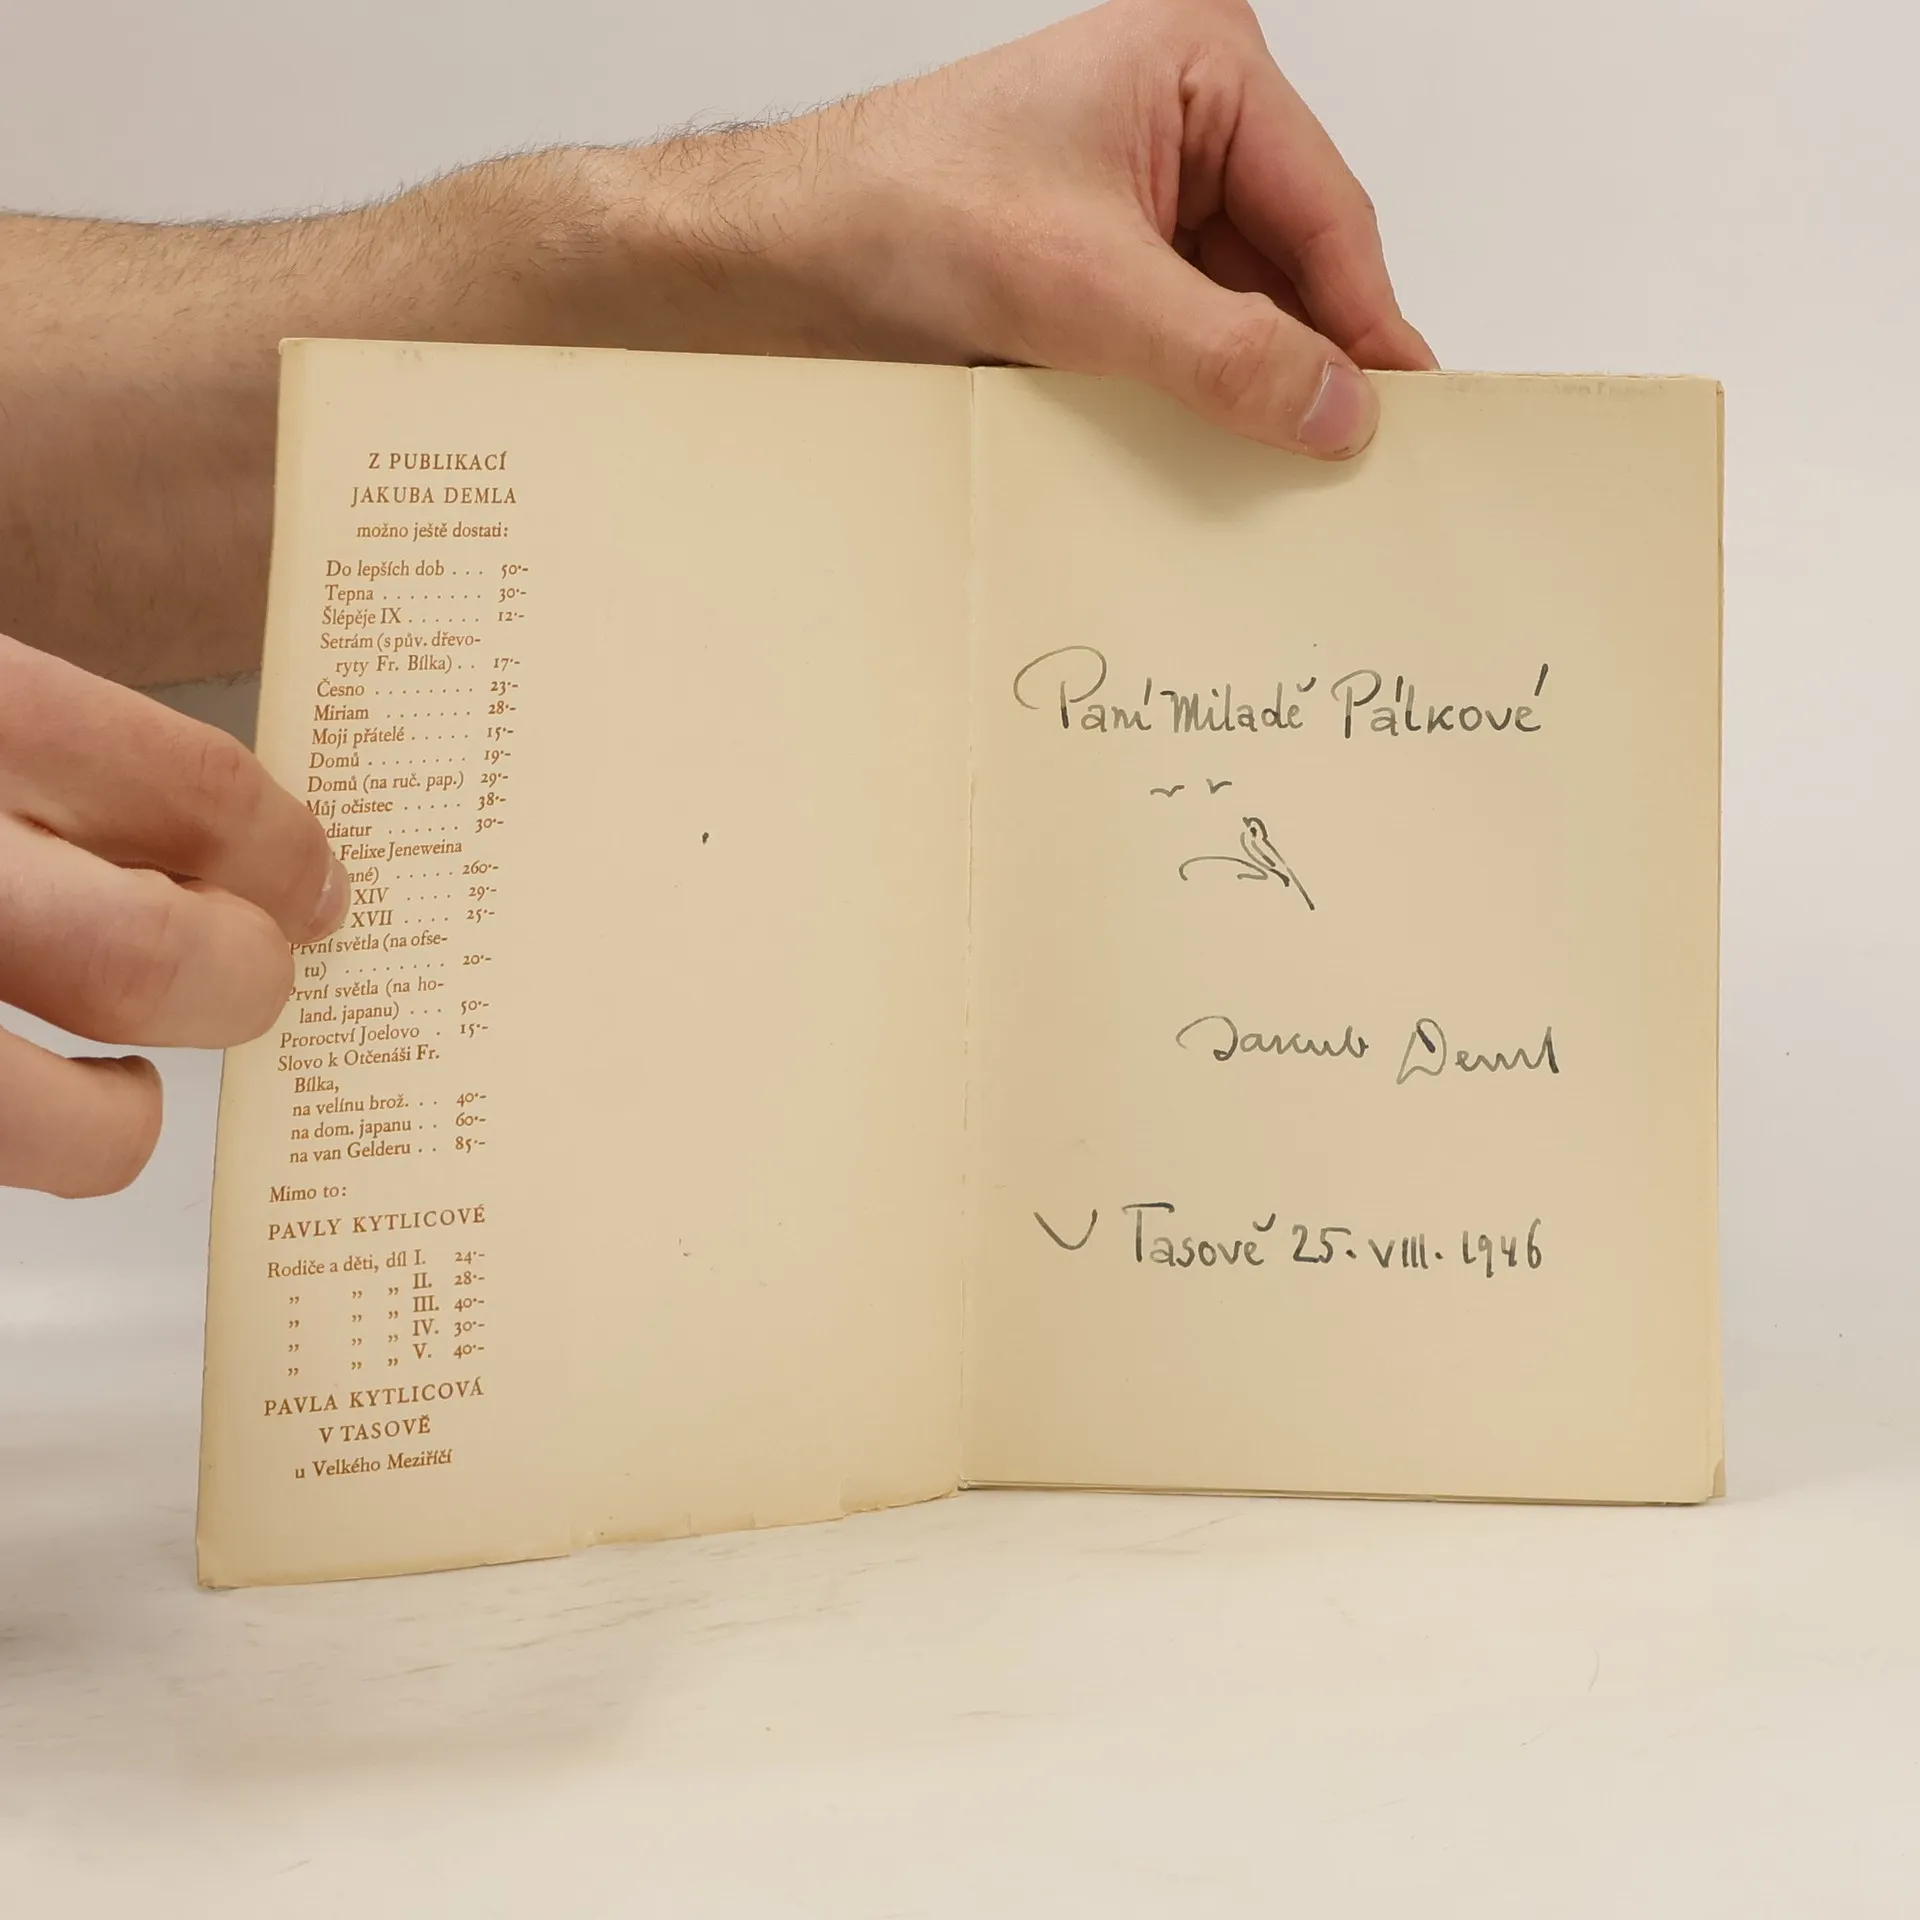 Z PUBLIKACÍ
JAKUBA DEMLA
možno ještě dostati:
Do lepších dob . . . 50·-
Tepna . . . . . . . . 30·-
Šlépěje IX . . . . . . 12·-
Setrám (s pův. dřevo-
ryty Fr. Bílka) . . 17·-
Česno . . . . . . . . 23·-
Miriam . . . . . . . 28·-
Moji přátelé . . . . . 15·-
Domů . . . . . . . . 19·-
Domů (na ruč. pap.) 29·-
Můj očistec . . . . . 38·-
diatur . . . . . . 30·-
Felixe Jeneweina
ané) . . . . . 260·-
XIV . . . . 29·-
XVII . . . . 25·-
První světla (na ofse-
tu) . . . . . . . . 20·-
První světla (na ho-
land. japanu) . . . 50·-
Proroctví Joelovo . 15·-
Slovo k Otčenáši Fr.
Bílka,
na velínu brož. . . 40·-
na dom. japanu . . 60·-
na van Gelderu . . 85·-
Mimo to:
PAVLY KYTLICOVÉ
Rodiče a děti, díl I. 24·-
„ „ „ II. 28·-
„ „ „ III. 40·-
„ „ „ IV. 30·-
„ „ „ V. 40·-
PAVLA KYTLICOVÁ
V TASOVĚ
u Velkého Meziříčí
Paní Miladě Pálkové
Jakub Deml
V Tasově 25. VIII. 1946